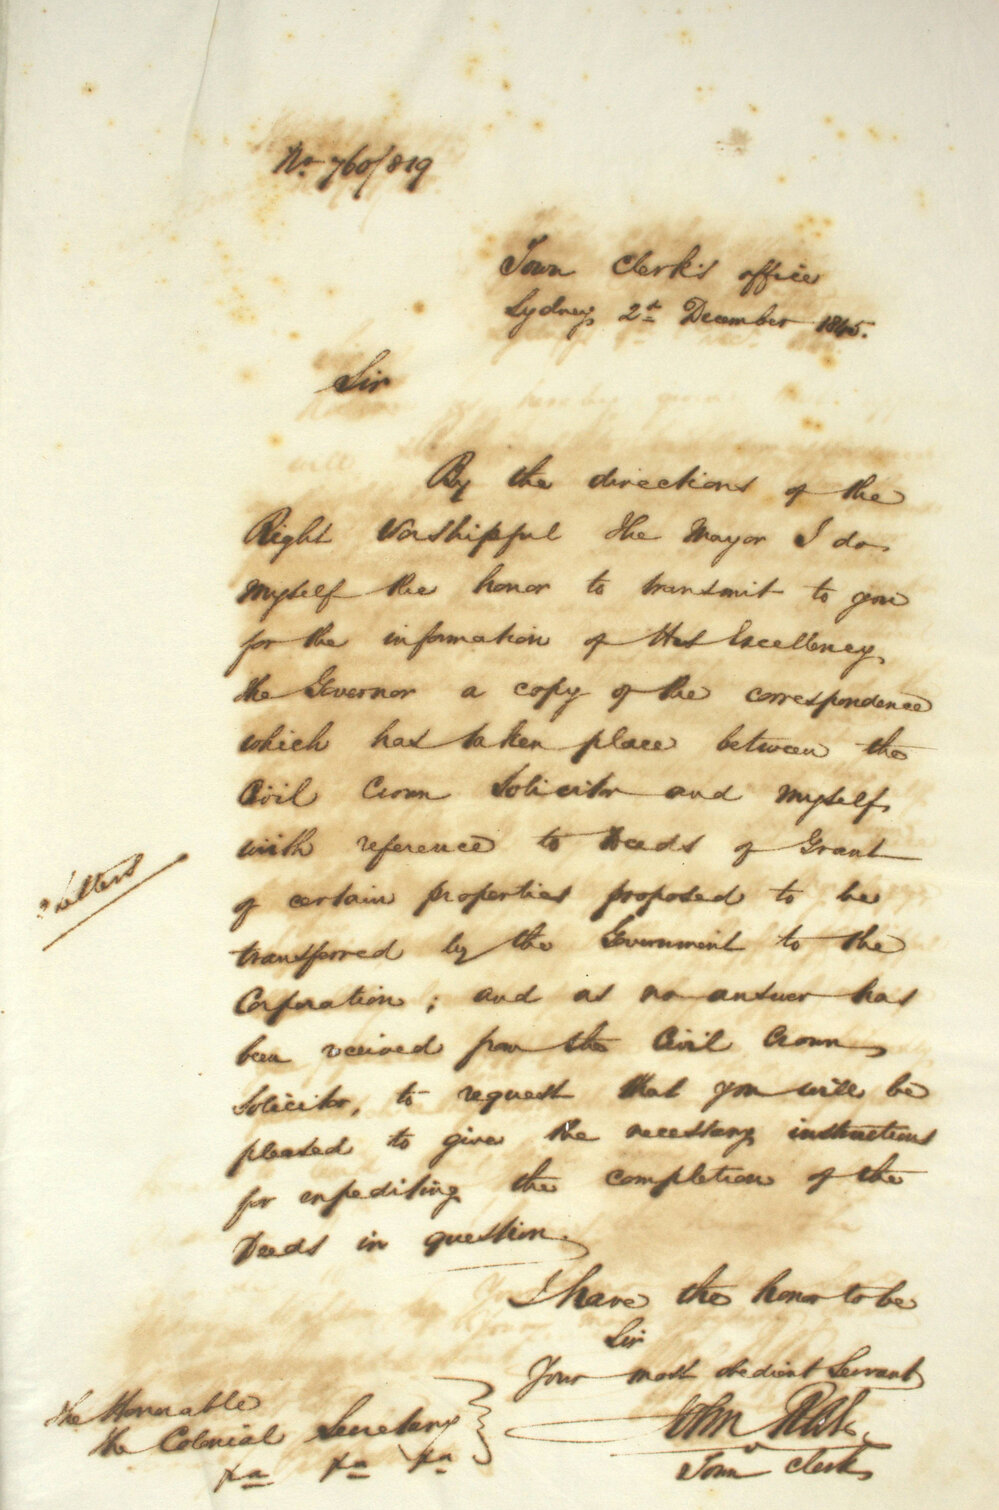 No. 760/819
Town Clerk's office
Sydney 2d December 1845.
Sir
By the directions of the
Right Worshipful the Mayor I do
myself the honor to transmit to you
for the information of His Excellency
the Governor a copy of the correspondence
which has taken place between the
Civil Crown Solicitor and myself
with reference to Deeds of Grant
of certain properties proposed to be
transferred by the Government to the
Corporation; and as no answer has
been received from the Civil Crown
Solicitor, to request that you will be
pleased to give the necessary instructions
for expediting the completion of the
Deeds in question.
Letters
I have the honor to be
Sir
Your most obedient Servant
John
Town Clerk
The Honorable
the Colonial Secretary